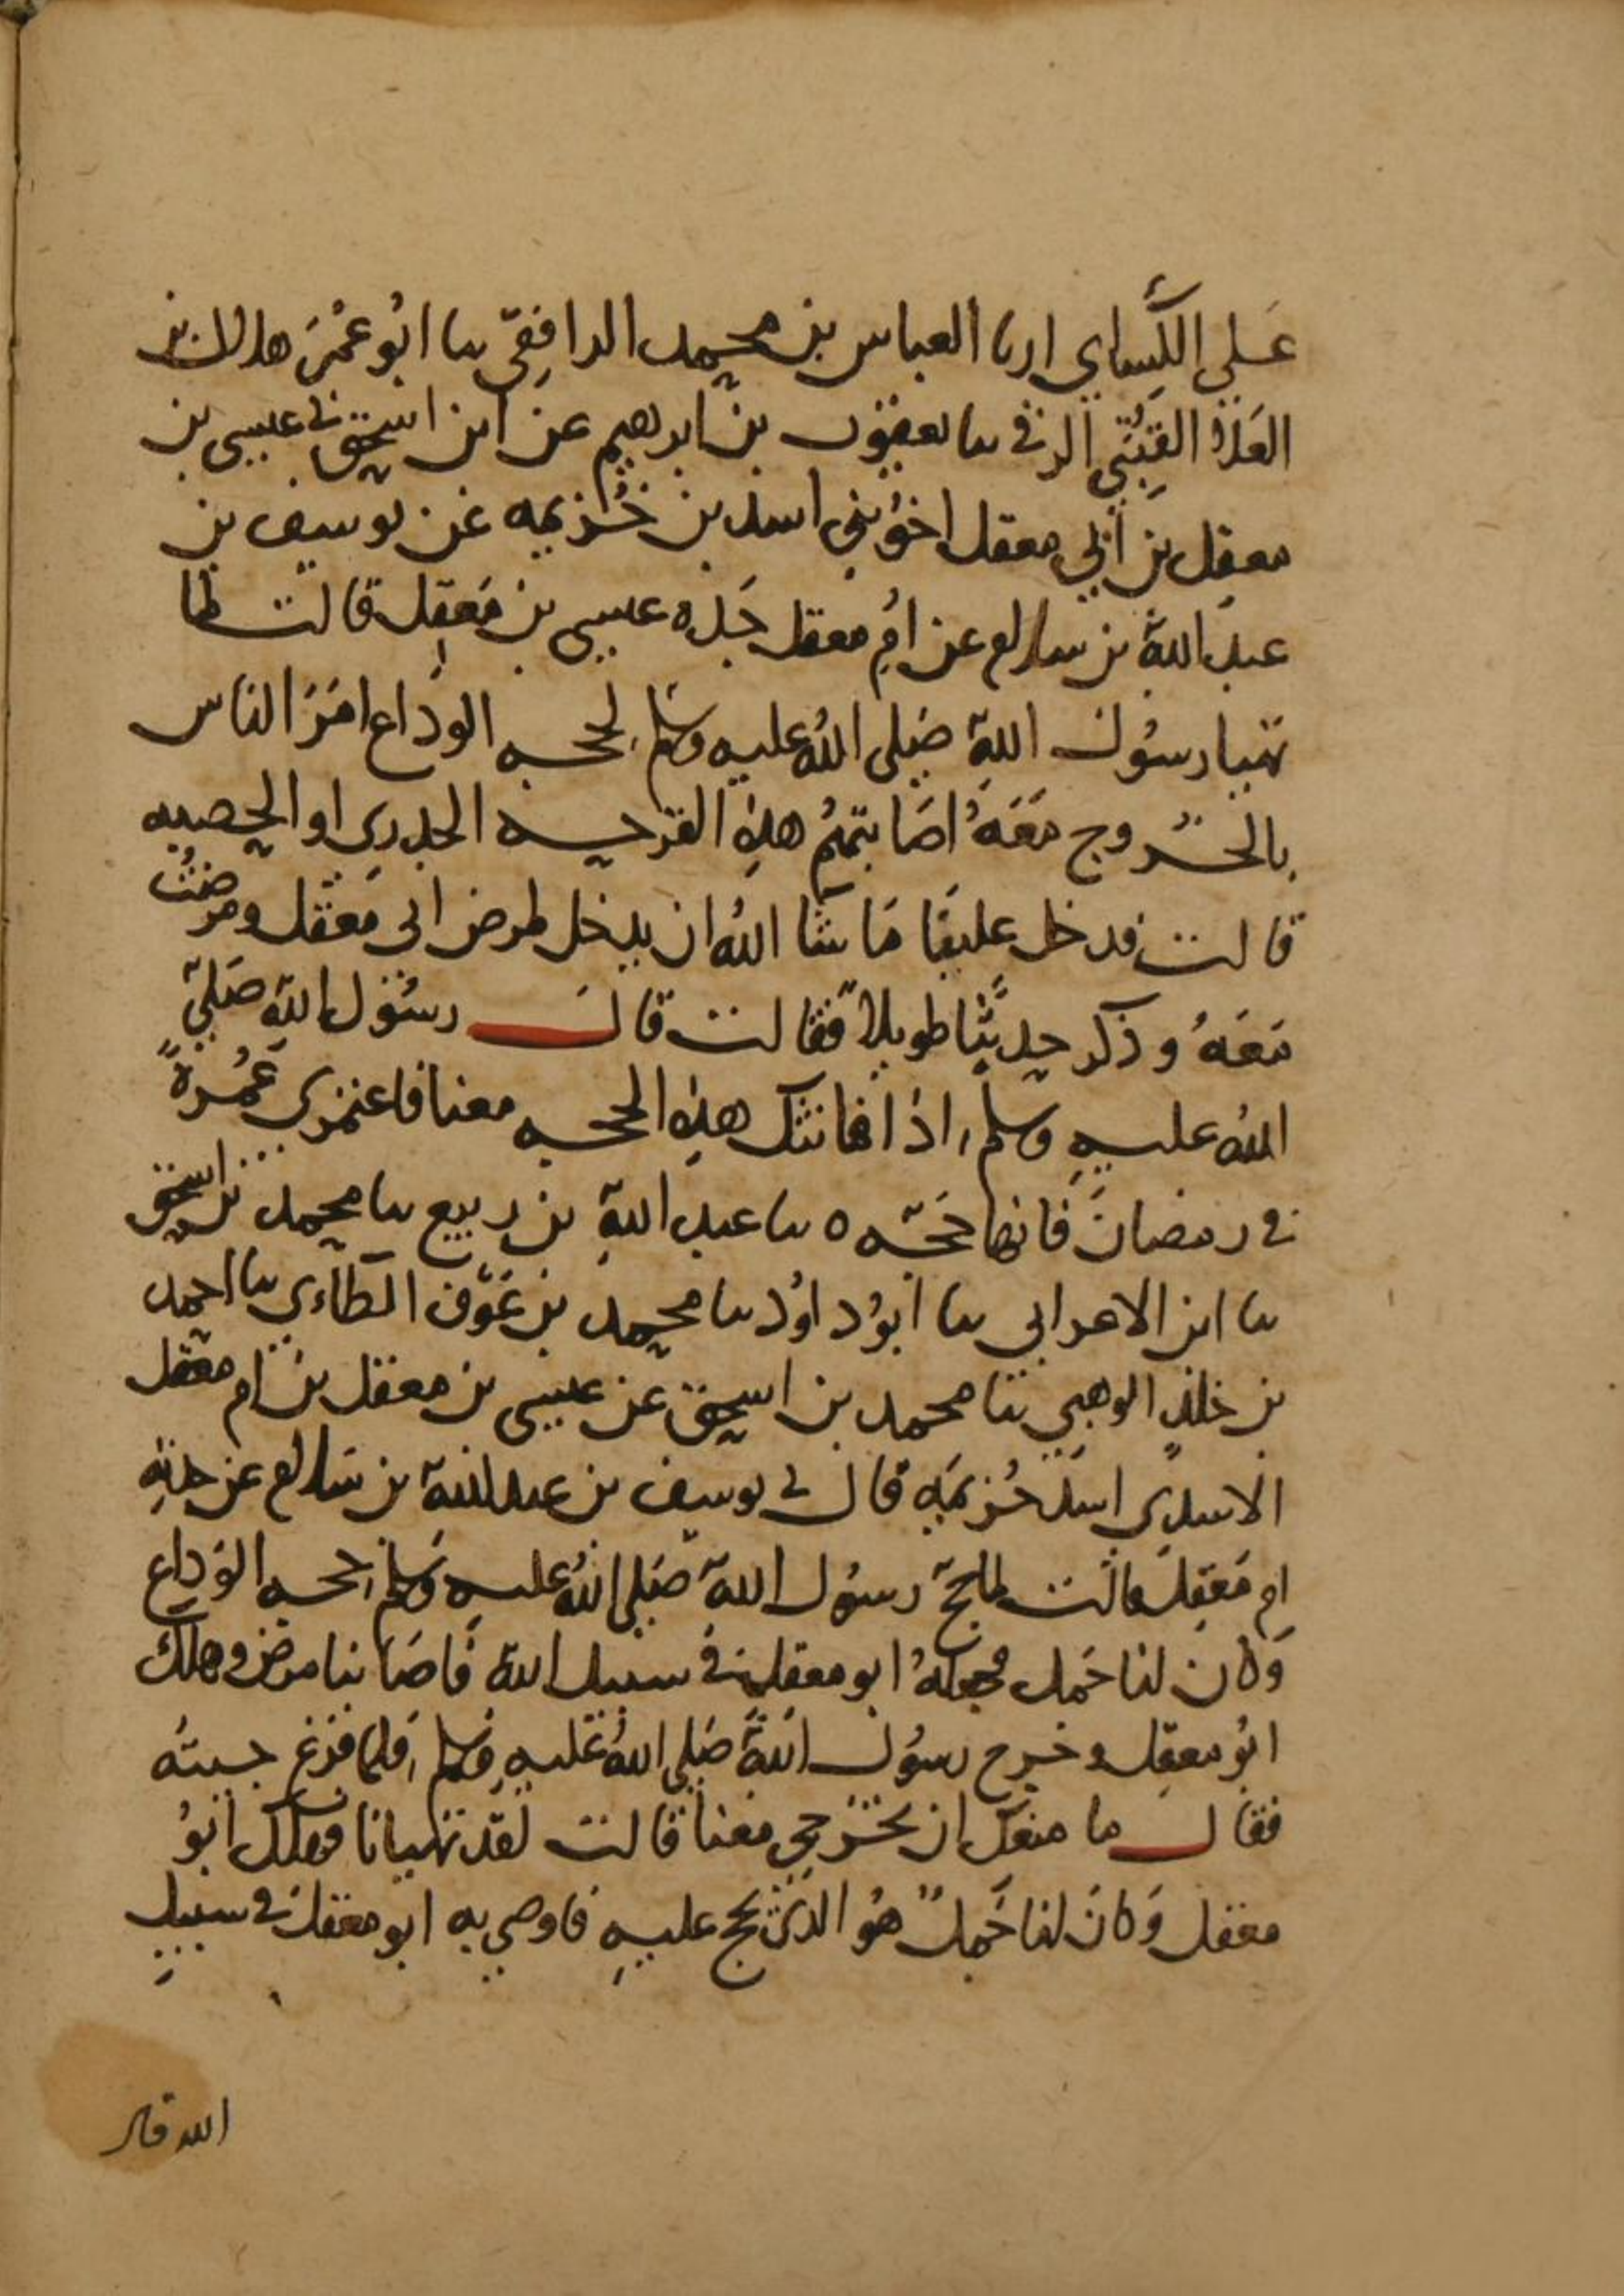 علي الكسائي ارنا العباس بن محمد الرافقي سا ابو عمر هلال بن
العلاء القتبي الرقي سا يعقوب بن ابرهيم عن ابن اسحق ني عيسى بن
معقل بن ابي معقل اخو بني اسد بن خزيمه عن يوسف بن
عبد الله بن سلام عن ام معقل جده عيسى بن معقل قالت لما
تهيا رسول الله صلى الله عليه وسلم لحجه الوداع امر الناس
بالخروج معه اصابتهم هذه القرحه الجدري او الحصبه
قالت فدخل علينا ما شا الله ان يدخل فمرض ابو معقل ومرضت
معه وذكر حديثا طويلا فقالت قال رسول الله صلى
الله عليه وسلم اذا فاتتك هذه الحجه معنا فاعتمري عمرة
في رمضان فانها حجه ه سا عبد الله بن ربيع سا محمد بن اسحق
سا ابن الاعرابي سا ابو داود سا محمد بن عوف الطاءي سا احمد
بن خلد الوهبي ثنا محمد بن اسحق عن عيسى بن معقل بن ام معقل
الاسدي اسد خزيمه قال ني يوسف بن عبد الله بن سلام عن جدته
ام معقل قالت لما حج رسول الله صلى الله عليه وسلم حجه الوداع
وكان لنا جمل فجعله ابو معقل في سبيل الله فاصابنا مرض وهلك
ابو معقل وخرج رسول الله صلى الله عليه وسلم فلما فرغ جيته
فقال ما منعك ان تخرجي معنا قالت لقد تهيانا فهلك ابو
معقل وكان لنا جمل هو الذي نحج عليه فاوصى به ابو معقل في سبيل
الله قال